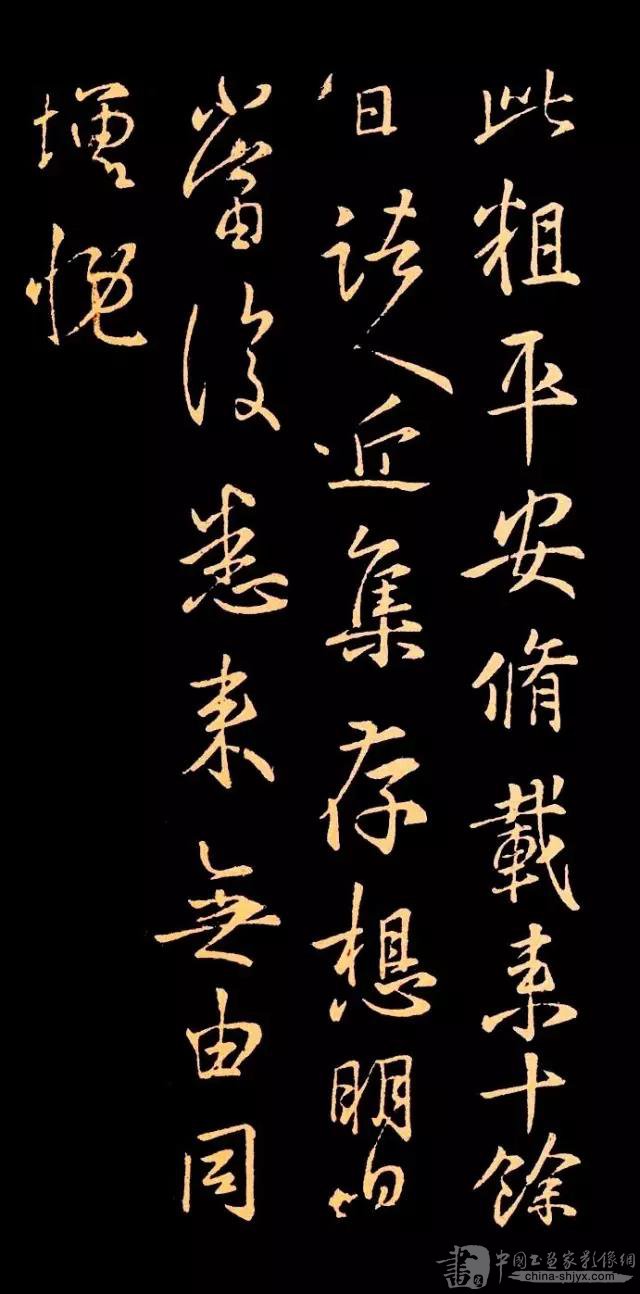 此粗平安脩載來十餘
日諸人近集存想明日
當復悉來無由同
增慨
書
中國书画家影像網
china-shjyx.com